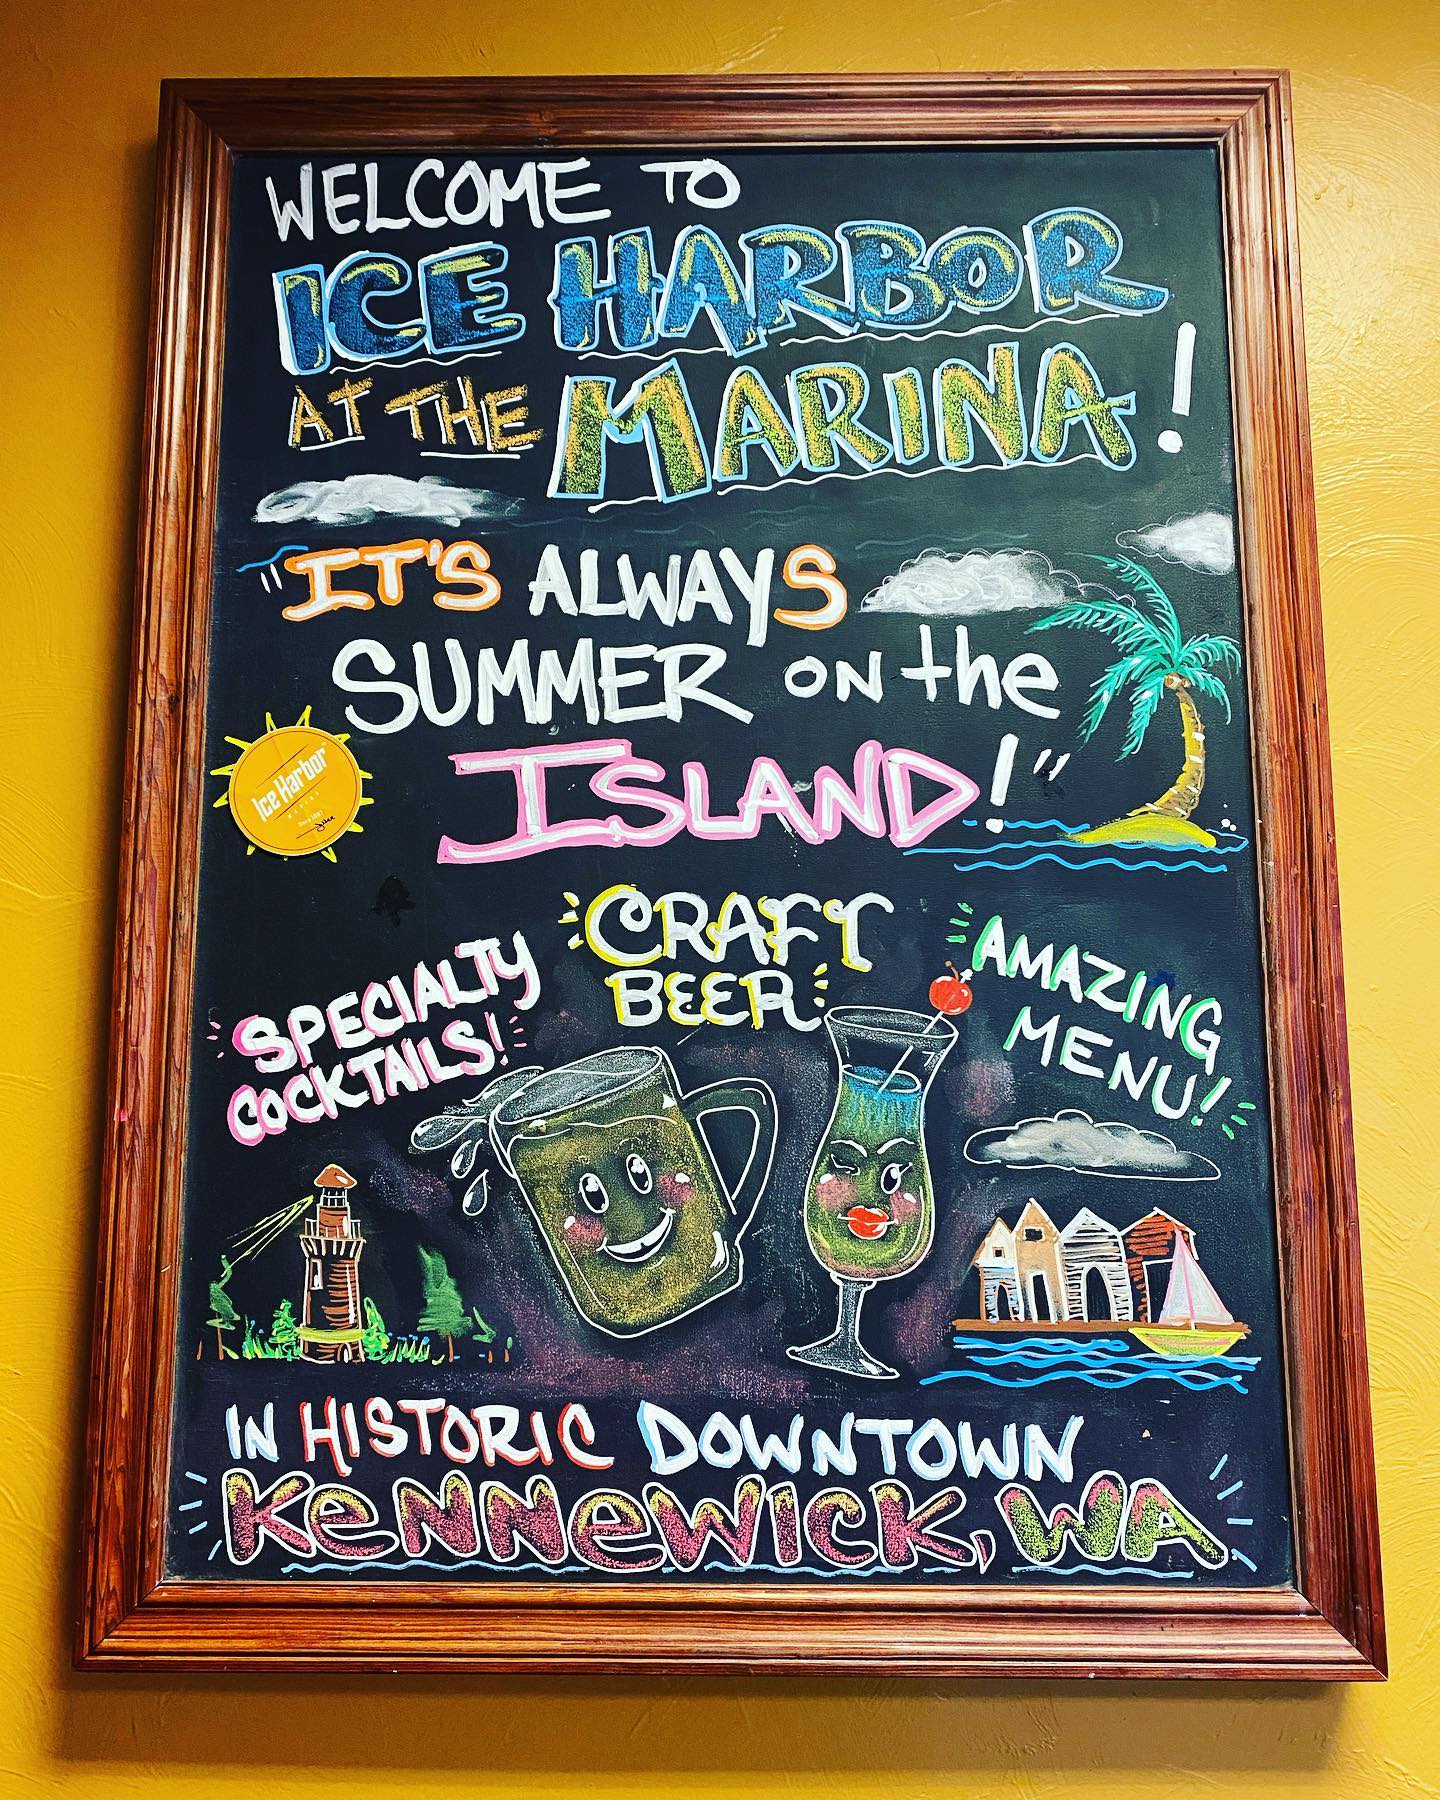 WELCOME TO
ICE HARBOR
AT THE MARINA!
"IT'S ALWAYS
SUMMER ON the
ISLAND!"
Ice Harbor
CRAFT
BEER
SPECIALTY
COCKTAILS!
AMAZING
MENU!
IN HISTORIC DOWNTOWN
KeNNeWICK, WA